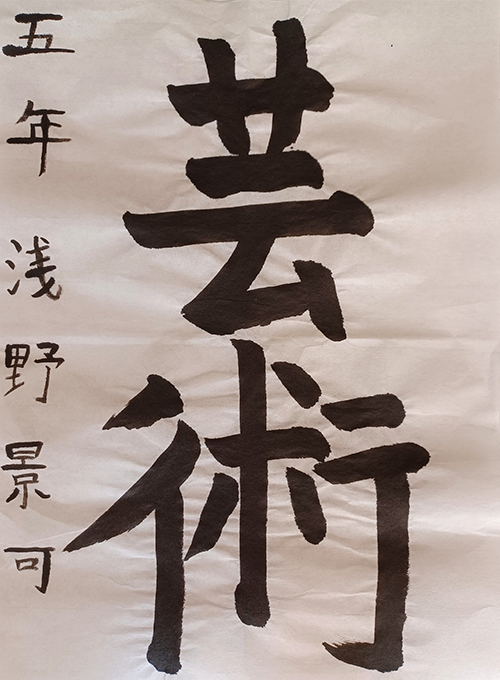 芸術
五年 浅野景可